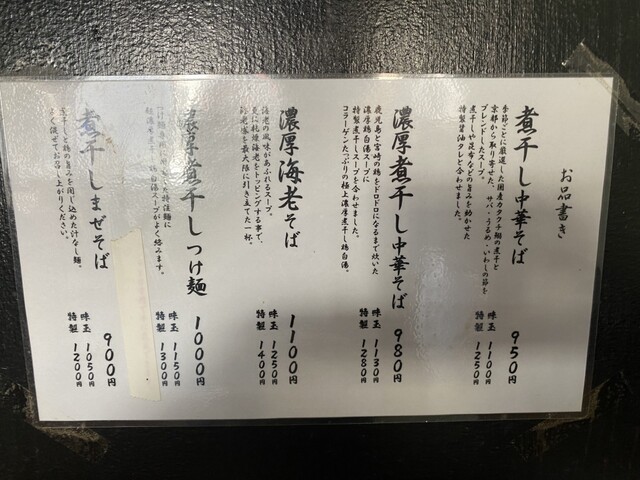 お品書き
煮干し中華そば 950円
季節ごとに厳選した国産カタクチ鰯の煮干と
京都から取り寄せた、サバ・うるめ・いわしの節を
ブレンドしたスープ。
煮干しや昆布などの旨みを効かせた
特製醤油タレと合わせました。
味玉 1100円
特製 1250円
濃厚煮干し中華そば 980円
鹿児島と宮崎の鶏をドロドロになるまで炊いた
濃厚鶏白湯スープに
特製煮干しスープを合わせました。
コラーゲンたっぷりの極上濃厚煮干し鶏白湯。
味玉 1130円
特製 1280円
濃厚海老そば 1100円
海老の風味があふれるスープ。
更に乾燥海老をトッピングする事で、
海老感を最大限に引き立てた一杯。
味玉 1250円
特製 1400円
濃厚煮干しつけ麺 1000円
特注麺に
鶏白湯スープがよく絡みます。
味玉 1150円
特製 1300円
煮干しまぜそば 900円
煮干しと鶏の旨みを閉じ込めた汁なし麺。
よく混ぜてお召し上がりください。
味玉 1050円
特製 1200円